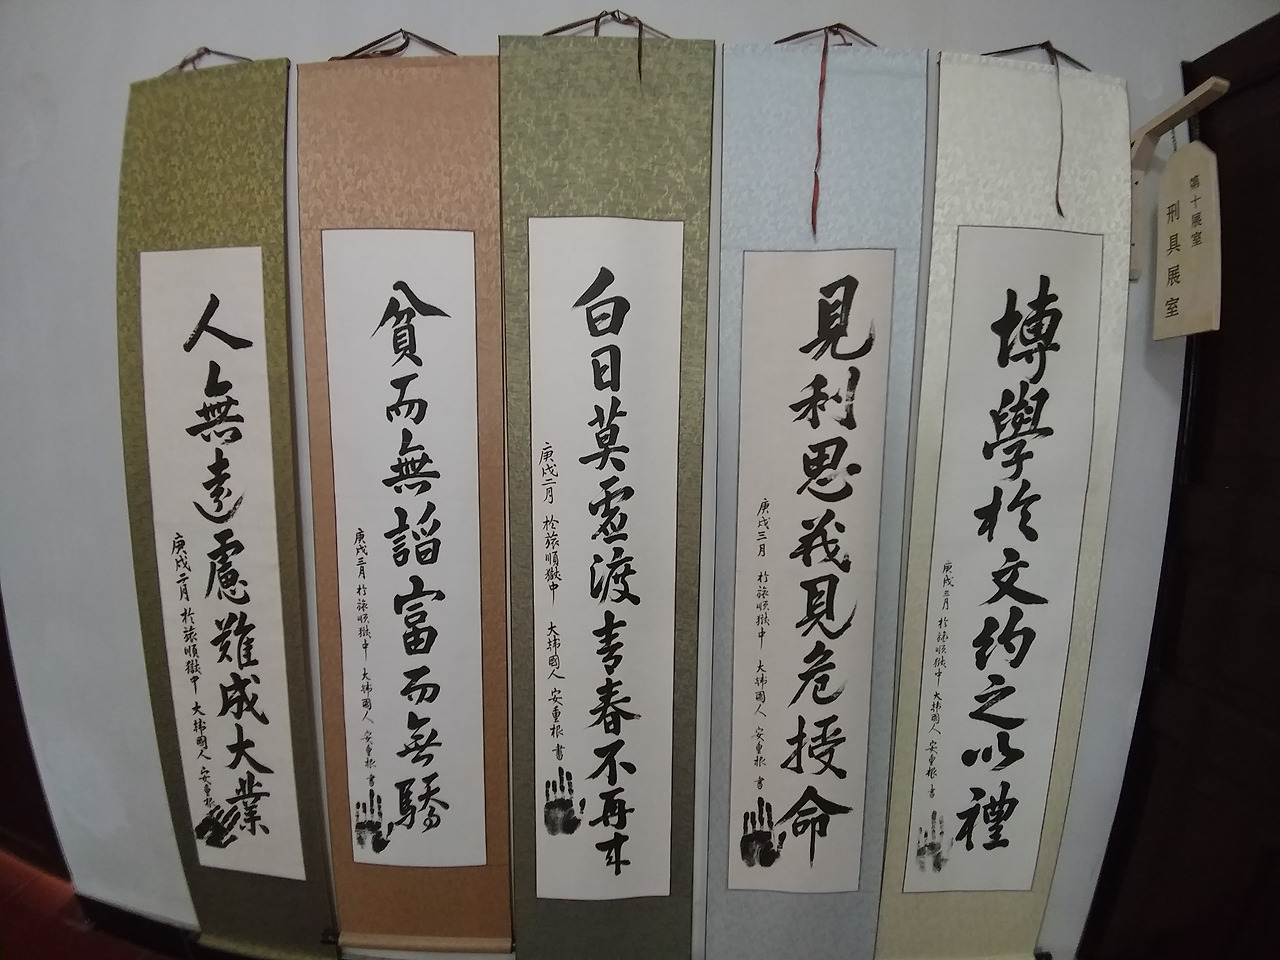 人無遠慮難成大業
庚戌二月 於旅順獄中 大韓國人 安重根
貧而無諂富而無驕
庚戌三月 於旅順獄中 大韓國人 安重根 書
白日莫虛渡青春不再來
庚戌二月 於旅順獄中 大韓國人 安重根 書
見利思義見危授命
庚戌三月 於旅順獄中 大韓國人 安重根 書
博學於文約之以禮
庚戌三月 於旅順獄中 大韓國人 安重根 書
第十展室
刑具展室